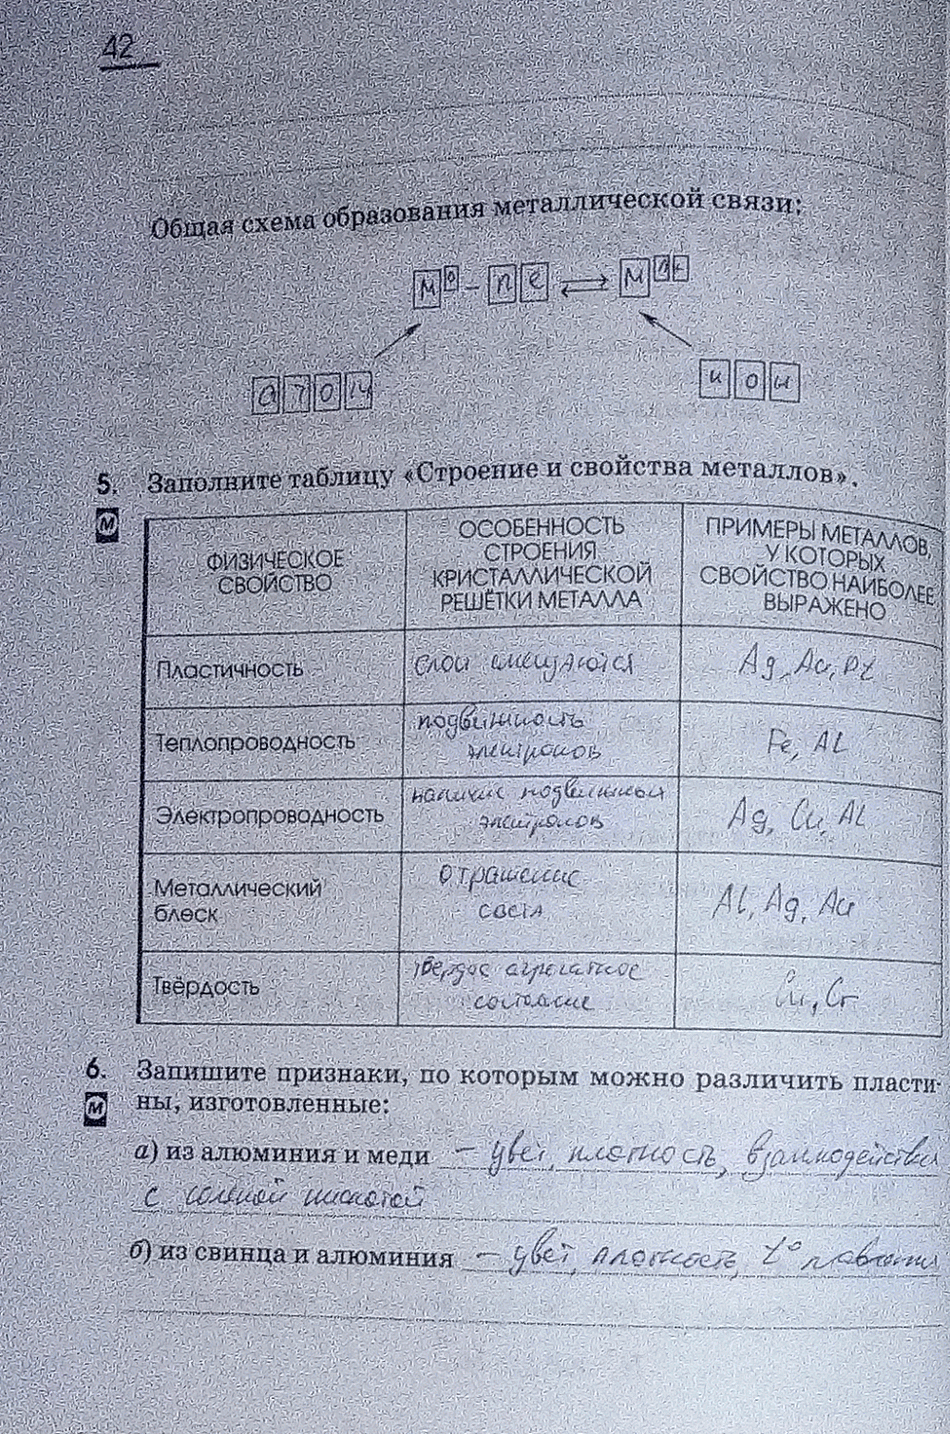 42
Общая схема образования металлической связи:
M⁰ – n e ⇄ Mⁿ⁺
атом
ион
5. Заполните таблицу «Строение и свойства металлов».
М
ФИЗИЧЕСКОЕ СВОЙСТВО
ОСОБЕННОСТЬ СТРОЕНИЯ КРИСТАЛЛИЧЕСКОЙ РЕШЁТКИ МЕТАЛЛА
ПРИМЕРЫ МЕТАЛЛОВ, У КОТОРЫХ СВОЙСТВО НАИБОЛЕЕ ВЫРАЖЕНО
Пластичность слои смещаются Ag, Au, Pt
Теплопроводность подвижность электронов Fe, Al
Электропроводность наличие подвижных электронов Ag, Cu, Al
Металлический блеск отражение света Al, Ag, Au
Твёрдость твёрдое агрегатное состояние Cr
6. Запишите признаки, по которым можно различить пласти-
М
ны, изготовленные:
а) из алюминия и меди – цвет, плотность, взаимодействие
с соляной кислотой
б) из свинца и алюминия – цвет, плотность, t° плавления